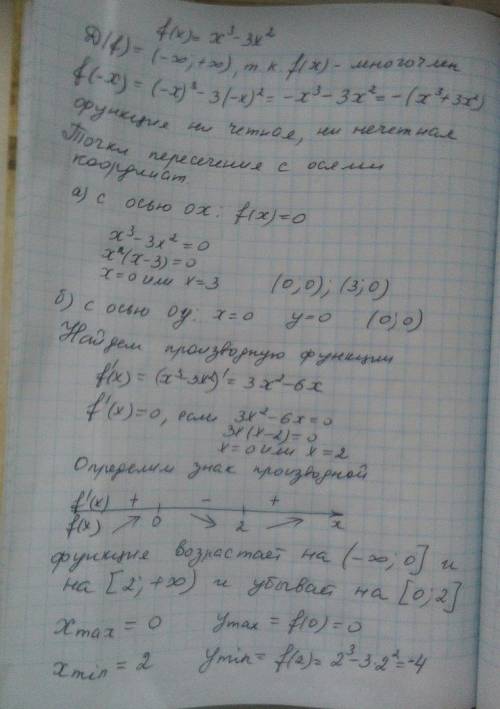 f(x) = x³ - 3x²
D(f) = (-∞; +∞), т.к. f(x) - многочлен
f(-x) = (-x)³ - 3(-x)² = -x³ - 3x² = -(x³ + 3x²)
функция ни четная, ни нечетная
Точки пересечения с осями
координат.
а) с осью ox: f(x) = 0
x³ - 3x² = 0
x²(x - 3) = 0
x = 0 или x = 3 (0; 0); (3; 0)
б) с осью oy: x = 0 y = 0 (0; 0)
Найдем производную функции
f'(x) = (x³ - 3x²)' = 3x² - 6x
f'(x) = 0, если 3x² - 6x = 0
3x(x - 2) = 0
x = 0 или x = 2
Определим знак производной
f'(x) + - +
f(x) ↗ 0 ↘ 2 ↗ x
функция возрастает на (-∞; 0] и
на [2; +∞) и убывает на [0; 2]
xmax = 0 ymax = f(0) = 0
xmin = 2 ymin = f(2) = 2³ - 3·2² = -4